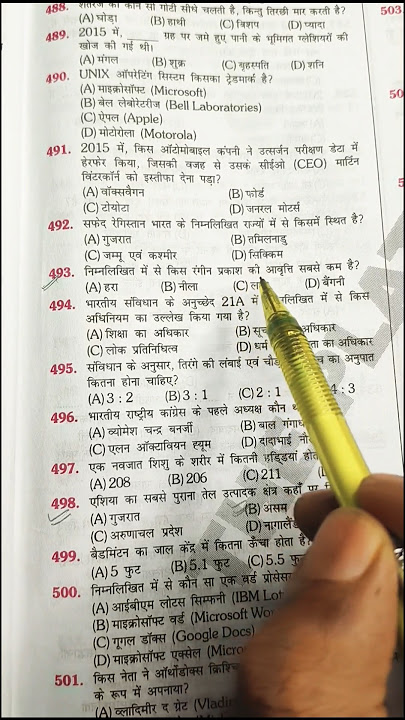 488. शतरंज की कौन सी गोटी सीधे चलती है, किन्तु तिरछी मार करती है?
(A) घोड़ा (B) हाथी (C) बिशप (D) प्यादा
489. 2015 में, ______ ग्रह पर जमे हुए पानी के भूमिगत ग्लेशियरों की
खोज की गई थी।
(A) मंगल (B) शुक्र (C) वृहस्पति (D) शनि
490. UNIX ऑपरेटिंग सिस्टम किसका ट्रेडमार्क है?
(A) माइक्रोसॉफ्ट (Microsoft)
(B) बेल लेबोरेटरीज (Bell Laboratories)
(C) ऐपल (Apple)
(D) मोटोरोला (Motorola)
491. 2015 में, किस ऑटोमोबाइल कंपनी ने उत्सर्जन परीक्षण डेटा में
हेरफेर किया, जिसकी वजह से उसके सीईओ (CEO) मार्टिन
विंटरकॉर्न को इस्तीफा देना पड़ा?
(A) वॉक्सवैगन (B) फोर्ड
(C) टोयोटा (D) जनरल मोटर्स
492. सफेद रेगिस्तान भारत के निम्नलिखित राज्यों में से किसमें स्थित है?
(A) गुजरात (B) तमिलनाडु
(C) जम्मू एवं कश्मीर (D) सिक्किम
493. निम्नलिखित में से किस रंगीन प्रकाश की आवृत्ति सबसे कम है?
(A) हरा (B) नीला (C) (D) बैंगनी
494. भारतीय संविधान के अनुच्छेद 21A में से किस
अधिनियम का उल्लेख किया गया है?
(A) शिक्षा का अधिकार (B) अधिकार
(C) लोक प्रतिनिधित्व (D) का अधिकार
495. संविधान के अनुसार, तिरंगे की लंबाई एवं का अनुपात
कितना होना चाहिए?
(A) 3 : 2 (B) 3 : 1 (C) 2 : 1 4 : 3
496. भारतीय राष्ट्रीय कांग्रेस के पहले अध्यक्ष कौन
(A) व्योमेश चन्द्र बनर्जी (B) बाल
(C) एलन ऑक्टावियन ह्यूम (D) दादाभाई
497. एक नवजात शिशु के शरीर में कितनी हड्डियां
(A) 208 (B) 206 (C) 211
498. एशिया का सबसे पुराना तेल उत्पादक क्षेत्र कहाँ पर
(A) गुजरात (B) असम
(C) अरुणाचल प्रदेश (D)
499. बैडमिंटन का जाल केंद्र में कितना ऊँचा होता है?
(A) 5 फुट (B) 5.1 फुट (C) 5.5
500. निम्नलिखित में से कौन सा एक वर्ड
(A) आईबीएम लोटस सिम्फनी (IBM
(B) माइक्रोसॉफ्ट वर्ड (Microsoft
(C) गूगल डॉक्स (Google Docs)
(D) माइक्रोसॉफ्ट एक्सेल
501. किस नेता ने ऑर्थोडोक्स
के रूप में अपनाया?
(A) व्लादिमीर द ग्रेट
503